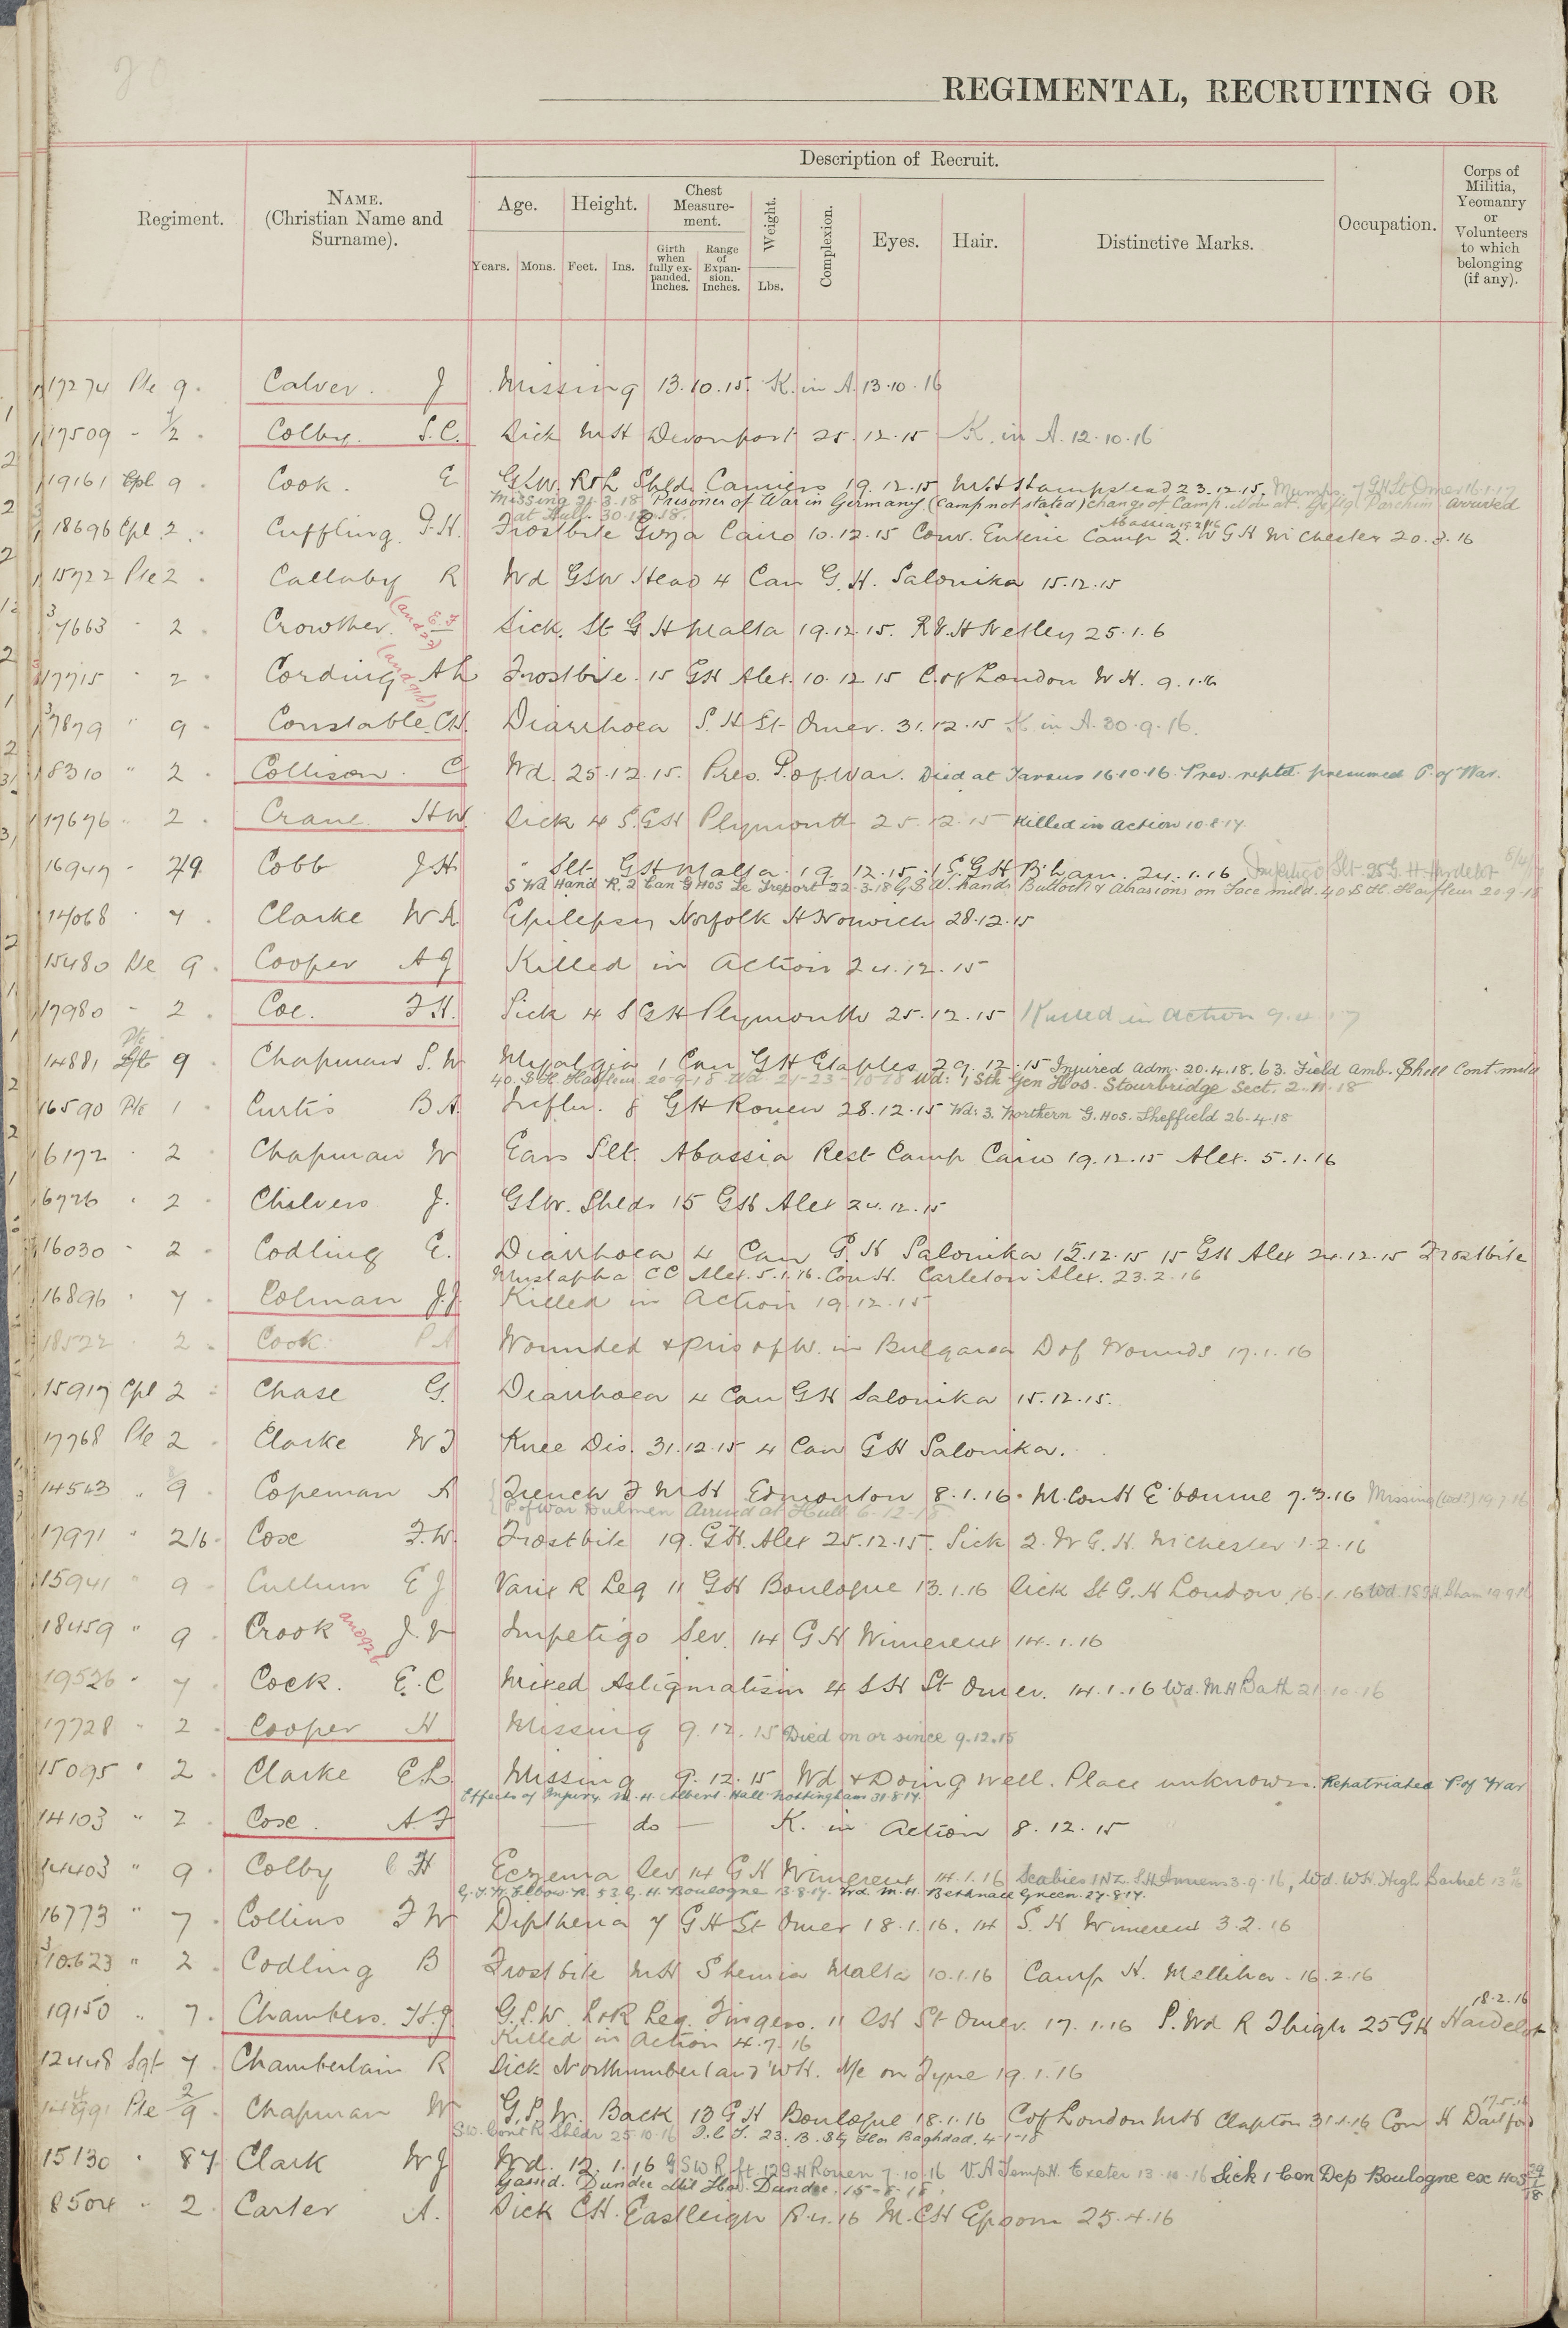 REGIMENTAL, RECRUITING OR
Regiment.
NAME.
(Christian Name and
Surname).
Description of Recruit.
Age.
Height.
Chest
Measure-
ment.
Weight.
Complexion.
Eyes.
Hair.
Distinctive Marks.
Occupation.
Corps of
Militia,
Yeomanry
or
Volunteers
to which
belonging
(if any).
Years.
Mons.
Feet.
Ins.
Girth
when
fully ex-
panded.
Inches.
Range
of
Expan-
sion.
Inches.
Lbs.
17274 Pte 9. Calver. J Missing 13.10.15. K. in A. 13.10.16
17509 - 1/2. Colby. S.C. Sick M H Devonport 25.12.15 K. in A. 12.10.16
19161 Cpl 9. Cook. E GSW. R & L Shldr Camiers 19.12.15 Hampstead 23.12.15. Mumps. 7 G H St Omer 16.1.17
Missing 21.3.18 Prisoner of War in Germany (Camp not stated) change of Camp. Parchim Arrived
at Hull. 30.12.18.
18696 Cpl. 2. Cuffling. F.H. Frostbite Giza Cairo 10.12.15 Conv. Enteric Camp 2. W G H M'chester 20.3.16
15722 Pte 2. Callaby R Wd GSW Head 4 Can G. H. Salonika 15.12.15
7663 " 2. Crowther. E.F Sick. St G H Malta 19.12.15. R.V.H Netley 25.1.6
17715 " 2. Cording A L Frostbite. 15 GH Alex. 10.12.15 C. of London W. H. 9.1.16
7879 " 9. Constable. C.H. Diarrhoea S. H St Omer. 31.12.15 K. in A. 30.9.16.
18310 " 2. Collison. C Wd. 25.12.15. Pres. P. of War. Died at Tarsus 16.10.16. Prev. reptd. presumed P. of War.
17676 " 2. Crane H W Sick 4 S. G H Plymouth 25.12.15 Killed in action 10.8.17.
16947 - 7/9 Cobb J.H. " Slt. G H Malta. 19.12.15. 1 S. G H B'ham. 24.1.16 Impetigo Slt. 25 G. H Hardelot
S Wd Hand R. 2 Can G Hos Le Treport 22.3.18 G.S.W. hands Buttock & Abrasions on Face mild. 40 S H. Harfleur 20.9.18
14068 - 7. Clarke W R Epilepsy Norfolk H Norwich 28.12.15
15480 Pte 9. Cooper A J Killed in Action 24.12.15
17980 - 2. Coe. F H. Sick 4 S G H Plymouth 25.12.15 Killed in action
14881 Pte 9. Chapman S. W Myalgia 1 Can G H Etaples 29.12.15 Injured adm. 20.4.18. 63. Field Amb. Shell Cont. mild
40. S H. Harfleur. 20-9-18 Wd. 21-23-10-18 Wd: 1 Sth Gen Hos. Stourbridge Sect. 2.11.18
16590 Pte 1. Curtis B A. Influ. 8 G H Rouen 28.12.15 Wd: 3. Northern G. Hos. Sheffield 26.4.18
16172 " 2. Chapman W Ears Slt. Abassia Rest Camp Cairo 19.12.15 Alex. 5.1.16
6726 " 2. Chilvers J. GSW. Shldr 15 GH Alex 24.12.15
16030 - 2. Codling E. Diarrhoea 4 Can G. H Salonika 15.12.15 15 G H Alex 24.12.15 Frostbite
Mustapha C C Alex. 5.1.16. Con H. Carleton Alex. 23.2.16
16896 " 7. Colman J.J. Killed in Action 19.12.15
18522 " 2. Cook P A Wounded & Pris of W. in Bulgaria D of Wounds 17.1.16
15917 Cpl 2. Chase G. Diarrhoea 4 Can GH Salonika 15.12.15.
17768 Pte 2. Clarke W J Knee Dis. 31.12.15 4 Can G H Salonika.
14513 " 9. Copeman A Trench F M H Edmonton 8.1.16. M. Con H E'bourne 7.3.16 Missing
P of War Dulmen Arrived at Hull 6-12-18
17971 " 2/6. Cox F.W. Frostbite 19. G H. Alex 25.12.15. Sick 2. W G. H. M'chester 1.2.16
15941 " 9. Cullum E J Varix R Leg 11 GH Boulogne 13.1.16 Sick St G. H London 16.1.16
18459 " 9. Crook J. V Impetigo Sev. 14 G H Wimereux 14.1.16
19526 " 7. Cock. E. C Mixed Astigmatism 4 S H St Omer. 14.1.16 Wd. M H Bath 21.10.16
17728 " 2. Cooper H Missing 9.12.15 Died on or since 9.12.15
15095 " 2. Clarke E L. Missing 9.12.15 Wd & Doing well. Place unknown. Repatriated P. of War
Effects of Injury. M. H. Albert Hall Nottingham 31.8.17.
14103 " 2. Cox. A. F — do — K. in Action 8.12.15
14403 " 9. Colby C H Eczema Sev 14 G H Wimereux 14.1.16 Scabies 1 NZ. S.H Amiens 3.9.16, Wd. W H. High Barnet
Elbow R. 53 G. H. Boulogne 13.8.17. Wd. M. H. Bethnall Green. 27.8.17.
16773 " 7. Collins F W Diptheria 7 G H St Omer 18.1.16. 14 S. H Wimereux 3.2.16
10623 " 2. Codling B Frostbite M H Shemia Malta 10.1.16 Camp H. Melliha. 16.2.16
19150 " 7. Chambers. H.J G.S.W. L & R Leg. Fingers. 11 CH St Omer. 17.1.16 S. Wd R Thigh 25 GH Hardelot 18.2.16
Killed in Action 4.7.16
12448 Sgt 7. Chamberlain R Sick Northumberland W H. N/c on Tyne 19.1.16
Pte 2/9. Chapman W G.S.W. Back 13 G H Boulogne 18.1.16 C of London M H Clapton 31.1.16 Con H Dartford
S.W. Cont R Shldr 25.10.16 I.C.T. 23. B. Stg Hos Baghdad. 4-1-18
15130 " 87. Clark W J Wd. 12.1.16 G S W R ft. 12 G. H Rouen 7.10.16 V. A Temp H. Exeter 13.10.16 Sick 1 Con Dep Boulogne ex Hos
Gassed. Dundee Mil Hos. Dundee. 15-8-18.
8504 " 2. Carter A. Sick C H. Eastleigh M. C H Epsom 25.4.16